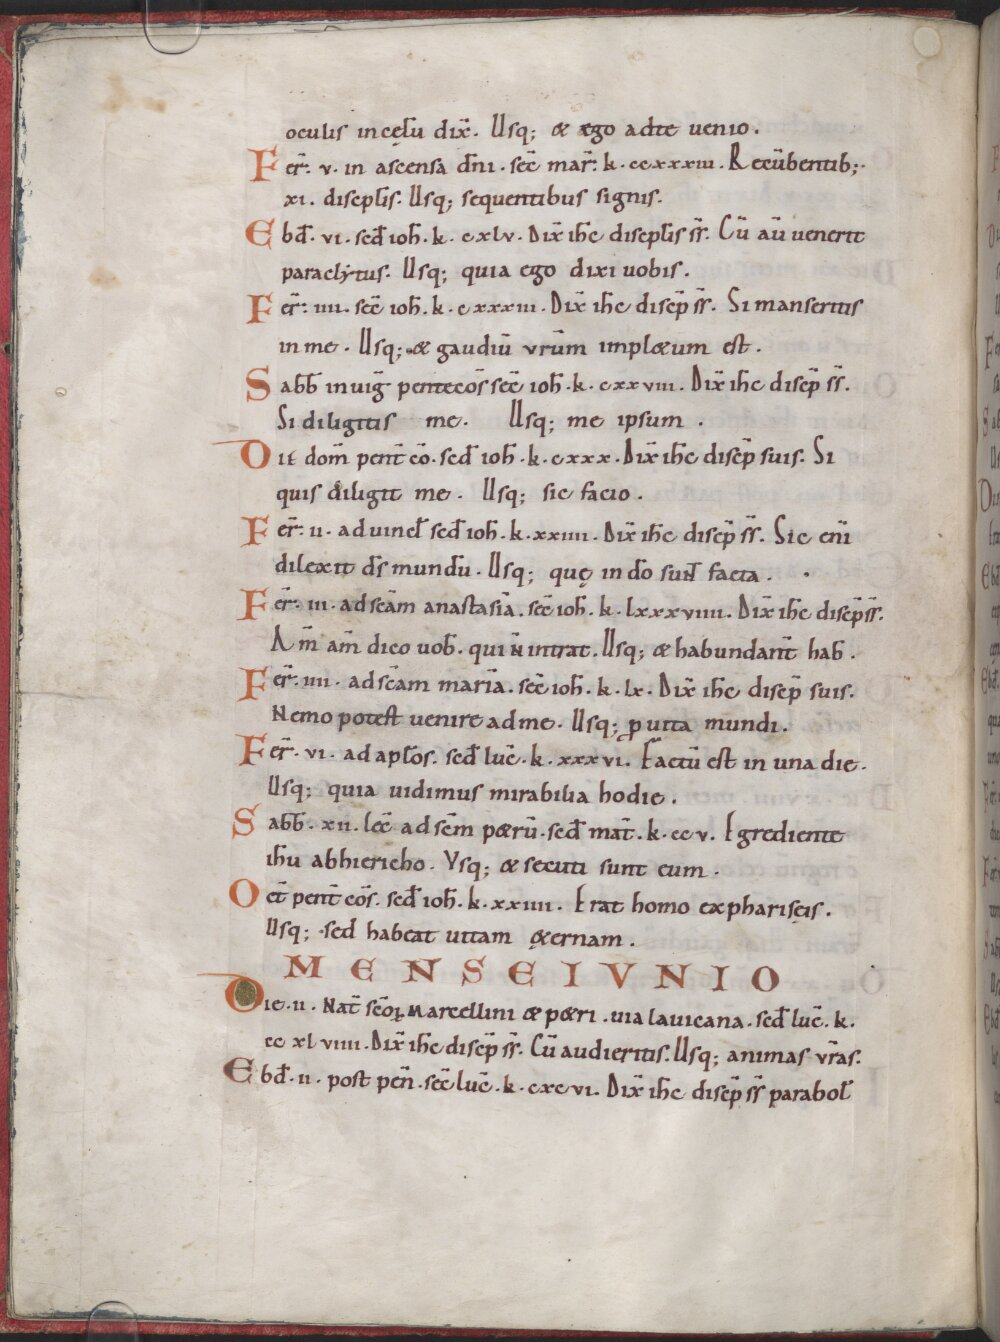 oculis in cęlū dix̄. Usq; & ego adte uenio.
Fer̄. v. in ascensa dn̄i. sec̄ mar̄. k. ccxxxiii. Recūbentib;.
xi. discplis. Usq; sequentibus signis.
Ebd̄. vi. sed̄ ioh̄. k. cxlv. Dix̄ ihc̄ discplis ss̄. Cū aū uenerit
paraclytus. Usq; quia ego dixi uobis.
Fer̄. iiii. sec̄ ioh̄. k. cxxxiii. Dix̄ ihc̄ discip̄ ss̄. Si manseritis
in me. Usq; & gaudiū vr̄m impl&um est.
Sabb̄ in uig̅ pentecos̄ sec̄ ioh̄. k. cxxviii. Dix̄ ihc̄ discp̄ ss̄.
Si diligitis me. Usq; me ipsum.
Die dom̄ pent̄ co̅. sed̄ ioh̄. k. cxxx. Dix̄ ihc̄ discp̄ suis. Si
quis diligit me. Usq; sic facio.
Fer̄. ii. ad uincl̄ sed̄ ioh̄. k. xxiiii. Dix̄ ihc̄ discp̄ ss̄. Sic eni̅
dilexit ds̄ mundū. Usq; quę in dō sun̄t facta.
Fer̄. iii. ad scām anastasiā. sec̄ ioh̄. k. lxxxviiii. Dix̄ ihc̄ discp̄ ss̄.
Am̄ am̄ dico uob̄. qui n̄ intrat. Usq; & habundan̄t hab̄.
Fer̄. iiii. ad scām mariā. sec̄ ioh̄. k. lx. Dix̄ ihc̄ discp̄ suis.
Nemo potest uenire ad me. Usq; ꝓ uita mundi.
Fer̄. vi. ad apl̄os. sed̄ luc̄. k. xxxvi. Factū est in una die.
Usq; quia uidimus mirabilia hodie.
Sabb̄. xii. lec̄ ad scm̄ p&rū. sed̄ mat̄. k. ccv. Egrediente
ihū abhiericho. Vsq; & secuti sunt eum.
Oct̄ pent̄ cos̄. sed̄ ioh̄. k. xxiiii. Erat homo expharisęis.
Usq; sed habeat uitam &ernam.
MENSE IVNIO
Die. ii. Nat̄ sc̄oꝝ Marcellini & p&ri. uia lauicana. sed̄ luc̄. k.
cc xlviiii. Dix̄ ihc̄ discp̄ ss̄. Cū audieritis. Usq; animas vr̄as.
Ebd̄. ii. post pen̄. sec̄ luc̄. k. cxcvi. Dix̄ ihc̄ discp̄ ss̄ parabol̄